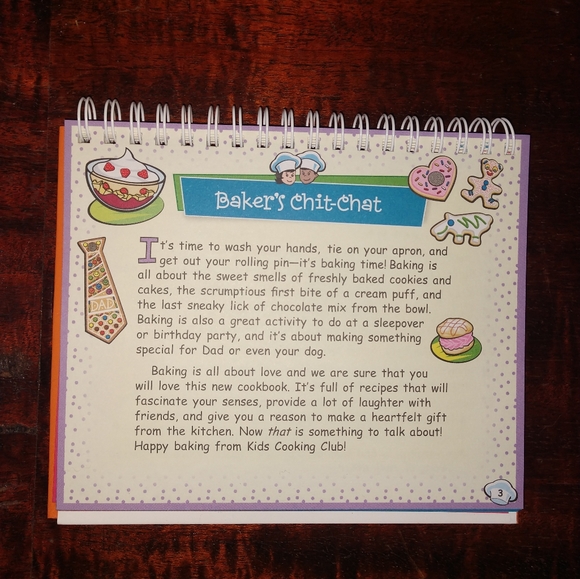 Baker's Chit-Chat
It's time to wash your hands, tie on your apron, and
get out your rolling pin—it's baking time! Baking is
all about the sweet smells of freshly baked cookies and
cakes, the scrumptious first bite of a cream puff, and
the last sneaky lick of chocolate mix from the bowl.
Baking is also a great activity to do at a sleepover
or birthday party, and it's about making something
special for Dad or even your dog.
Baking is all about love and we are sure that you
will love this new cookbook. It's full of recipes that will
fascinate your senses, provide a lot of laughter with
friends, and give you a reason to make a heartfelt gift
from the kitchen. Now that is something to talk about!
Happy baking from Kids Cooking Club!
DAD
3